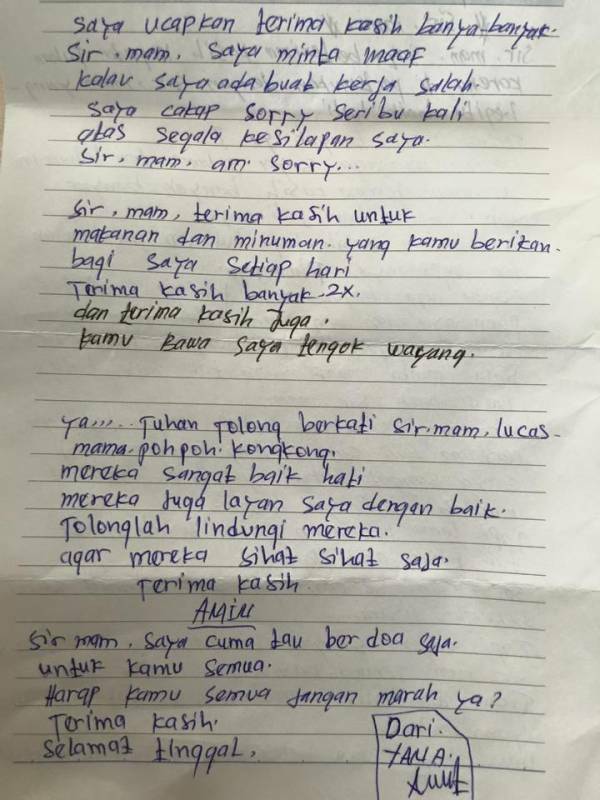 saya ucapkan terima kasih banya-banyak.
Sir. mam. saya minta maaf
kalau saya ada buat kerja salah.
saya cakap sorry seribu kali
atas segala kesilapan saya.
Sir. mam. am. sorry...
Sir. mam, terima kasih untuk
makanan dan minuman. yang kamu berikan.
bagi saya setiap hari
Terima kasih banyak.2x.
dan terima kasih juga.
kamu bawa saya tengok wayang.
ya,,,.. Tuhan Tolong berkati sir.mam, lucas-
mama.pohpoh.kongkong.
mereka sangat baik hati
mereka juga layan saya dengan baik.
Tolonglah lindungi mereka.
agar mereka sihat sihat saja.
Terima kasih
AMIN
Sir mam. saya cuma tau berdoa saja.
untuk kamu semua.
Harap kamu semua jangan marah ya?
Terima kasih.
Selamat tinggal.
Dari.
YANA.